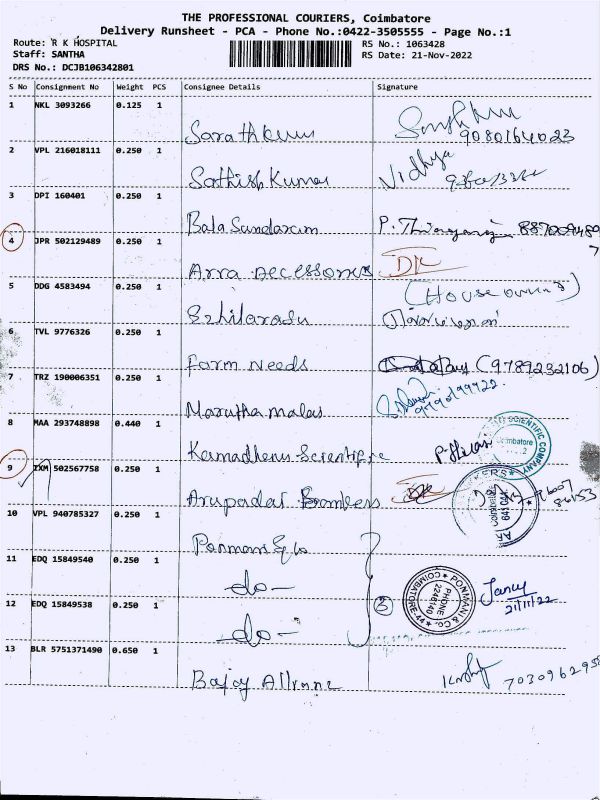 THE PROFESSIONAL COURIERS, Coimbatore
Delivery Runsheet - PCA - Phone No.:0422-3505555 - Page No.:1
Route: R K HOSPITAL
Staff: SANTHA
DRS No.: DCJB106342801
RS No.: 1063428
RS Date: 21-Nov-2022
S No Consignment No Weight PCS Consignee Details Signature
1 NKL 3093266 0.125 1
Sarathkum 9080164023
2 VPL 216018111 0.250 1
Sathish Kumar Vidhya
3 DPI 160401 0.250 1
Bala Sundaram P.
4 JPR 502129489 0.250 1
Arra Accessories DR
5 DDG 4583494 0.250 1
(House owner)
Ezhilarasu
6 TVL 9776326 0.250 1
Farm Needs (9789232106)
7 TRZ 190006351 0.250 1
Marutha malai
8 MAA 293748898 0.440 1
Kamadhenu Scientific
SCIENTIFIC COMPANY
Coimbatore
9 IXM 502567758 0.250 1
Arupadai
10 VPL 940785327 0.250 1
Ponmani & Co
11 EDQ 15849540 0.250 1
-do-
12 EDQ 15849538 0.250 1
-do-
3
PONMANI & CO.
PHONE
2246140
COIMBATORE-44
Jancy
21/11/22
13 BLR 5751371490 0.650 1
Bajaj 703096295